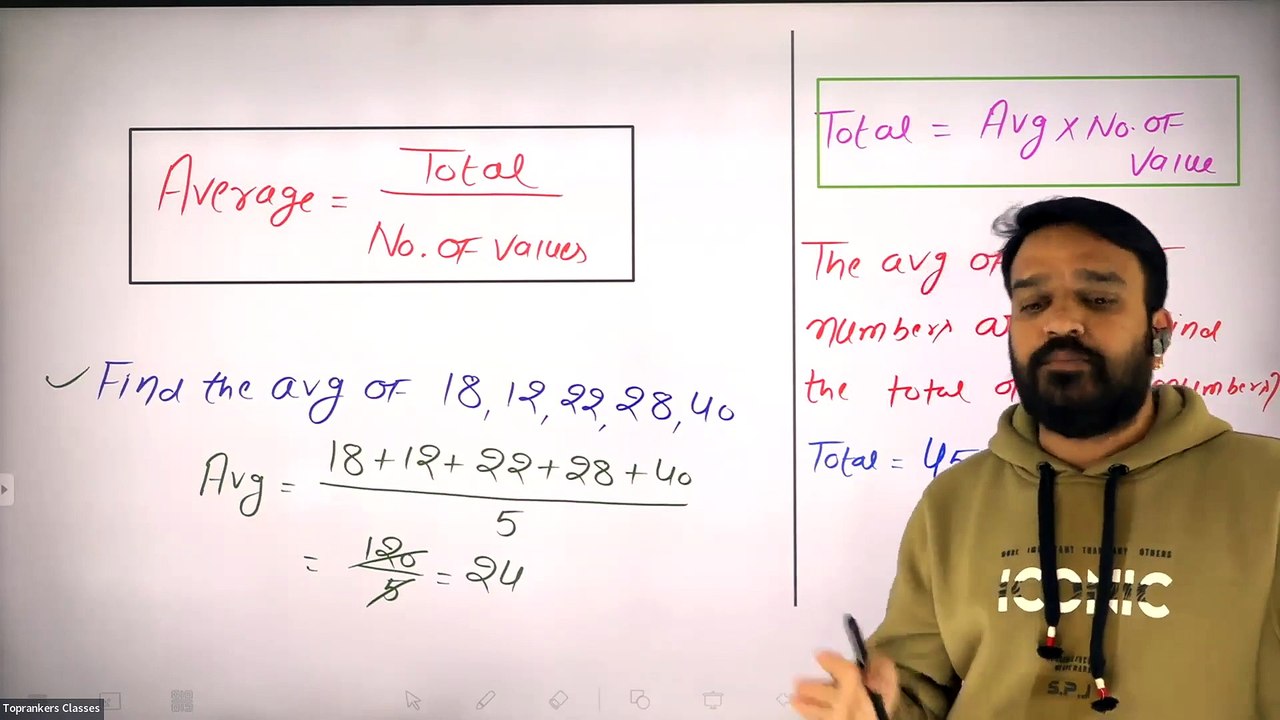 Average = Total
No. of values
✓ Find the avg of 18, 12, 22, 28, 40
Avg = 18+12+22+28+40
5
= 120
5
= 24
Total = Avg x No. of
value
The avg of
numbers
ind
the total
numbers?
Total = 45
ICONIC
S.P.J
Toprankers Classes